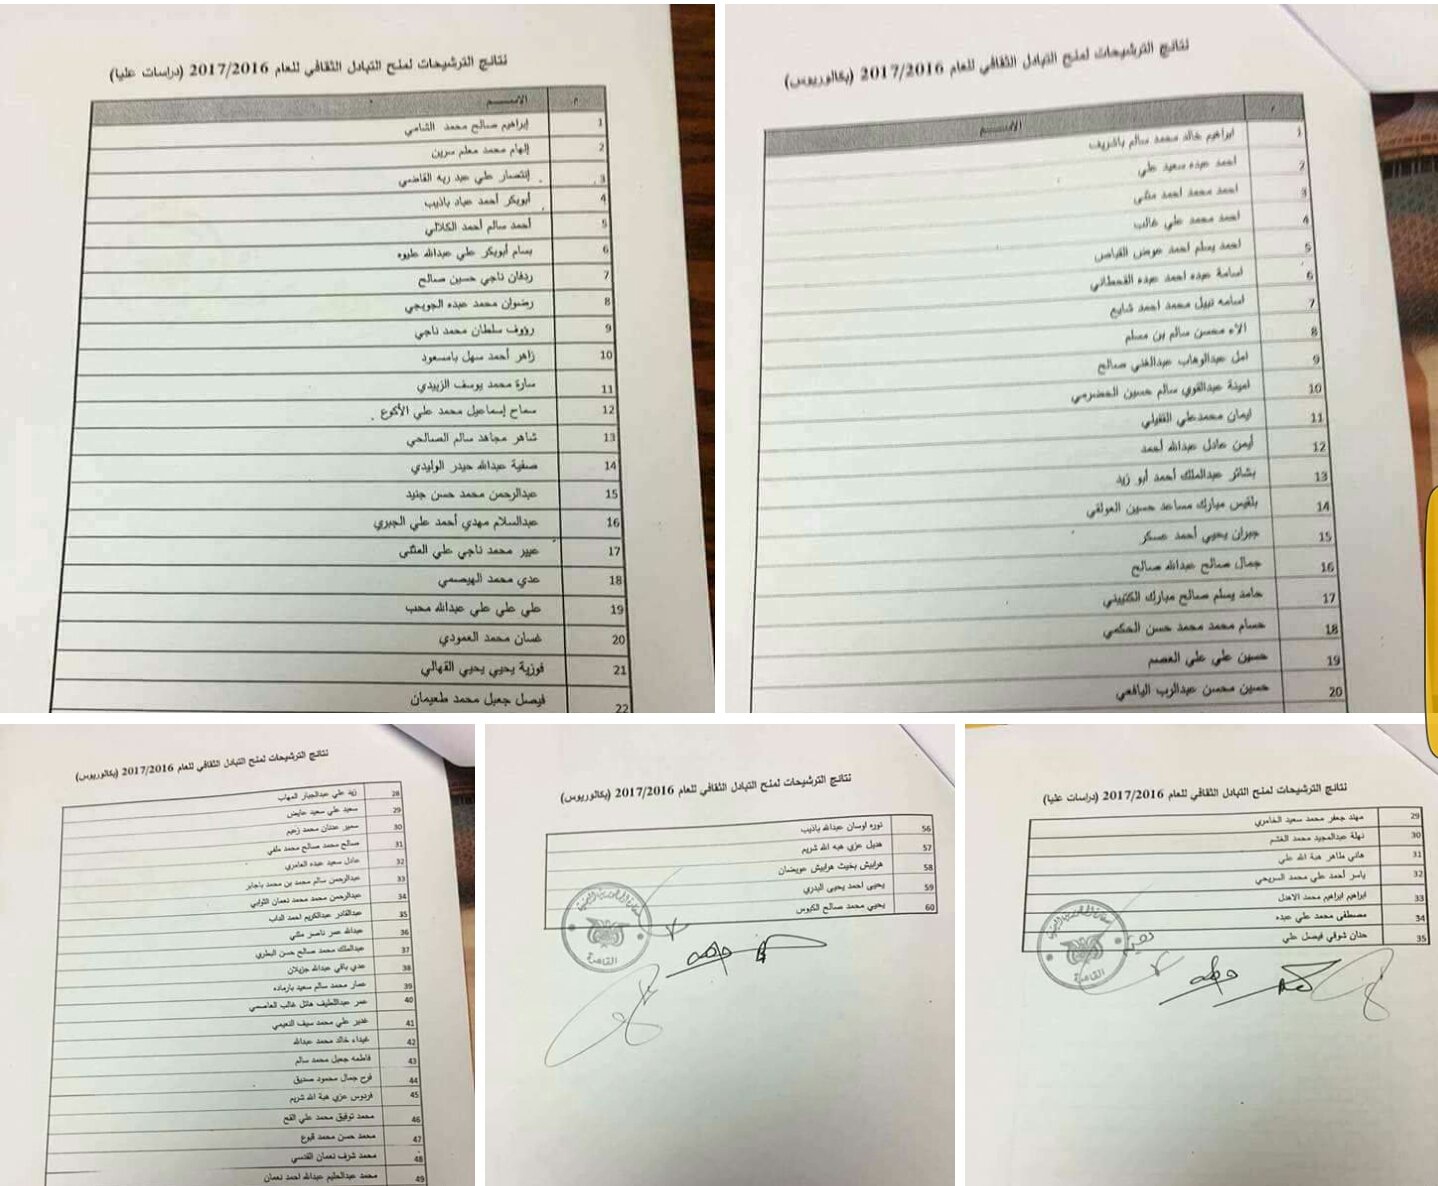 نتائج الترشيحات لمنح التبادل الثقافي للعام 2017/2016 (دراسات عليا)
م الاســـم
1 إبراهيم صالح محمد الشامي
2 إلهام محمد معلم سرين
3 إنتصار علي عبد ربه القاضي
4 أبوبكر أحمد عباد باذيب
5 أحمد سالم أحمد الكلالي
6 بسام أبوبكر علي عبدالله عليوه
7 ردفان ناجي حسين صالح
8 رضوان محمد عبده الجويجي
9 رؤوف سلطان محمد ناجي
10 زاهر أحمد سهل بامسعود
11 سارة محمد يوسف الزبيدي
12 سماح إسماعيل محمد علي الأكوع
13 شاهر مجاهد سالم الصالحي
14 صفية عبدالله حيدر الوليدي
15 عبدالرحمن محمد حسن جنيد
16 عبدالسلام مهدي أحمد علي الجبري
17 عبير محمد ناجي علي المثنى
18 عدي محمد الهيصمي
19 علي علي علي عبدالله محب
20 غسان محمد العمودي
21 فوزية يحيي يحيي القهالي
22 فيصل جعبل محمد طعيمان
نتائج الترشيحات لمنح التبادل الثقافي للعام 2017/2016 (بكالوريوس)
م الاســـم
1 ابراهيم خالد محمد سالم باشريف
2 احمد عبده سعيد علي
3 احمد محمد احمد مثنى
4 احمد محمد علي غالب
5 احمد يسلم احمد عوض القباص
6 اسامة عبده احمد عبده القحطاني
7 اسامه نبيل محمد احمد شايع
8 الاء محسن سالم بن مسلم
9 امل عبدالوهاب عبدالغني صالح
10 امينة عبدالقوي سالم حسين الحضرمي
11 ايمان محمدعلي الفقيلي
12 أيمن عادل عبدالله أحمد
13 بشائر عبدالملك أحمد أبو زيد
14 بلقيس مبارك مساعد حسين العولقي
15 جبران يحيي أحمد عسكر
16 جمال صالح عبدالله صالح
17 حامد يسلم صالح مبارك الكتبيني
18 حسام محمد محمد حسن الحكمي
19 حسين علي علي العصم
20 حسين محسن عبدالرب اليافعي
نتائج الترشيحات لمنح التبادل الثقافي للعام 2017/2016 (بكالوريوس)
28 زيد علي عبدالجبار المهاب
29 سعيد علي سعيد عايض
30 سمير عدنان محمد زعيم
31 صالح محمد صالح محمد ملفي
32 عادل سعيد عبده العامري
33 عبدالرحمن سالم محمد بن محمد باجابر
34 عبدالرحمن محمد محمد نعمان الثوابي
35 عبدالقادر عبدالكريم احمد الداب
36 عبدالله عمر ناصر مثنى
37 عبدالملك محمد صالح حسن البطري
38 عدي باقي عبدالله جزيلان
39 عمار محمد سالم سعيد بارماده
40 عمر عبداللطيف هائل غالب العاصمي
41 غدير علي محمد سيف النعيمي
42 غيداء خالد محمد عبدالله
43 فاطمه جعبل محمد سالم
44 فرح جمال محمود صديق
45 فردوس عزي هبة الله شريم
46 محمد توفيق محمد علي الفح
47 محمد حسن محمد قبوع
48 محمد شرف نعمان القدسي
49 محمد عبدالحليم عبدالله احمد نعمان
نتائج الترشيحات لمنح التبادل الثقافي للعام 2017/2016 (بكالوريوس)
56 نوره اوسان عبدالله باذيب
57 هديل عزي هبه الله شريم
58 هرابيش بخيت هرابيش عويضان
59 يحيى احمد يحيى البدري
60 يحيي محمد صالح الكبوس
القاهرة
نتائج الترشيحات لمنح التبادل الثقافي للعام 2017/2016 (دراسات عليا)
29 مهند جعفر محمد سعيد الخامري
30 نهلة عبدالمجيد محمد الغشم
31 هاني طاهر هبة الله علي
32 ياسر أحمد علي محمد السريحي
33 ابراهيم ابراهيم محمد الاهدل
34 مصطفى محمد علي عبده
35 حنان شوقي فيصل علي
القاهرة